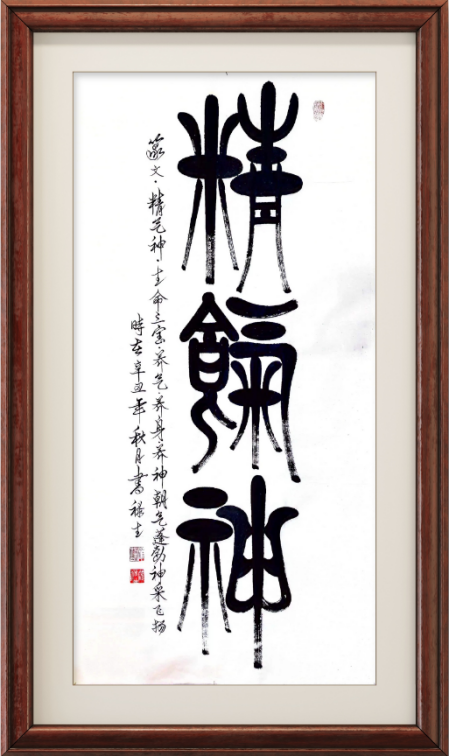 精餼神
篆文·精气神·生命三宝·养气养身养神朝气蓬勃神采飞扬
時在辛丑年秋月書